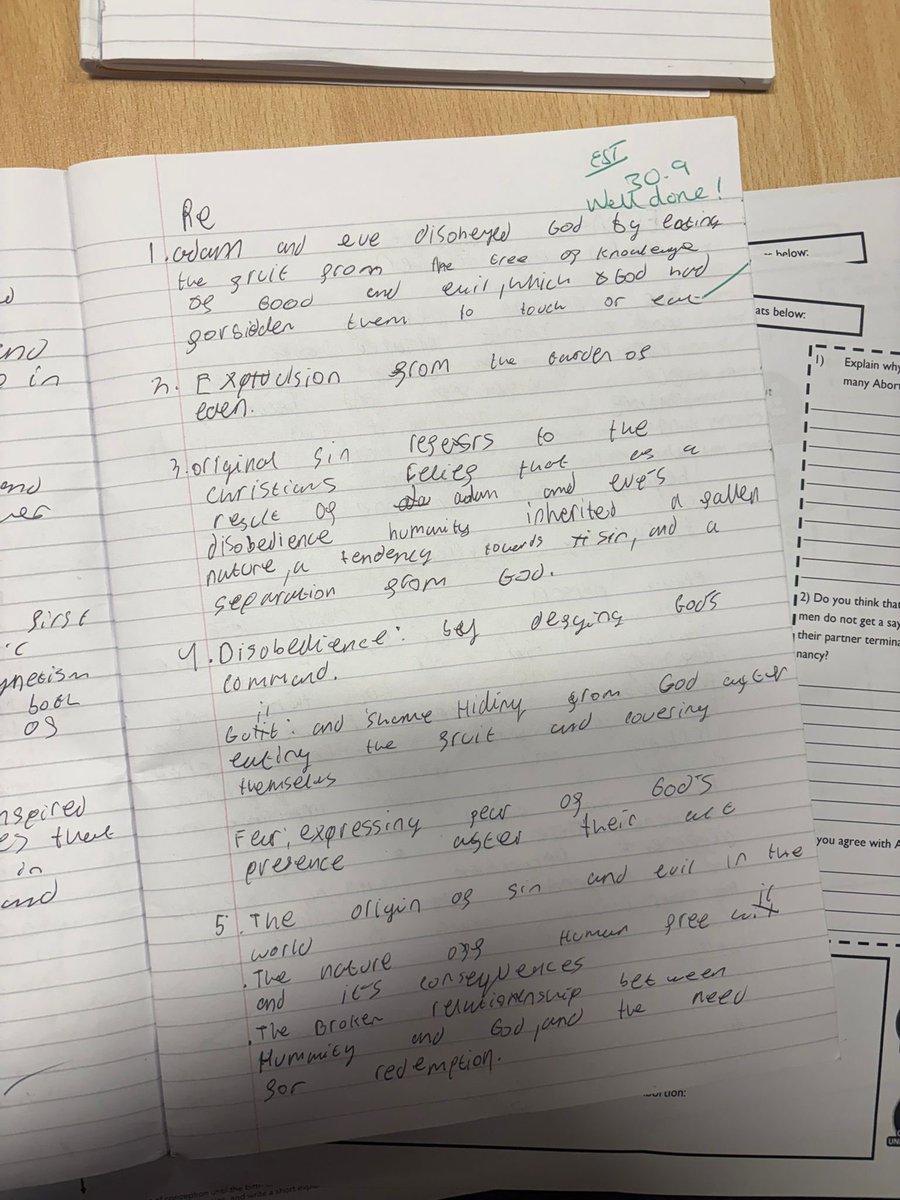 EST
30.9
Well done!
Re
1. adam and eve disoheyed God by eating
the fruit from the tree of knowledge
of Good and evil, which God had
forbidden them to touch or eat
2. Expulsion from the Garden of
eden.
3. original sin refers to the
christians belief that as a
result of adam and eve's
disobedience humanity inherited a fallen
nature, a tendency towards sin, and a
separation from God.
4. Disobedience: by defying God's
command.
Guilt: and shame Hiding from God after
eating the fruit and covering
themselves
Fear: expressing fear of God's
presence after their act
5. The origin of sin and evil in the
world
. The nature of Human free will
and it's consequences
. The Broken relationship between
Humanity and God, and the need
for redemption.
end
in
end
first
ynetism
book
of
nspired
es that
in
and
below:
ats below:
1) Explain why
many Abor
2) Do you think that
men do not get a say
their partner termina
nancy?
you agree with A
ortion: